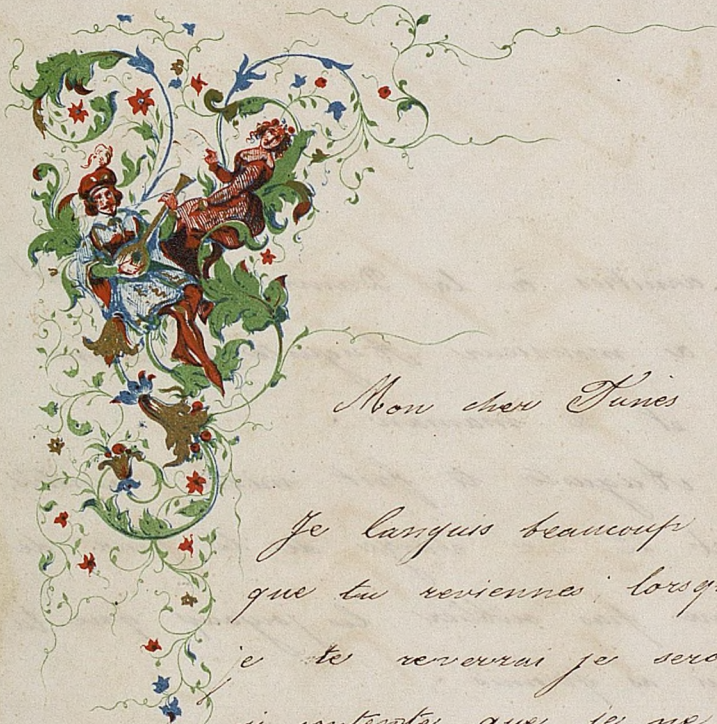 Mon cher Tunis
Je languis beaucoup
que tu reviennes, lorsq
je te reverrai je sera
contente que je ne